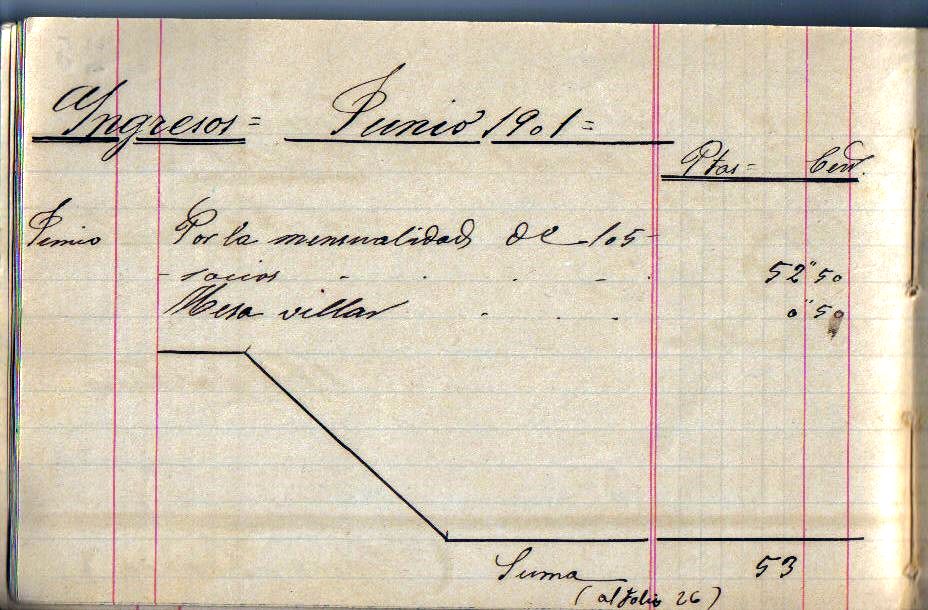 Ingresos= Junio 1901=
Ptas= Cent.
Junio Por la mensualidad de 105
- socios - . . - . 52"50
Mesa villar . . . 0"50
Suma 53
(al folio 26)